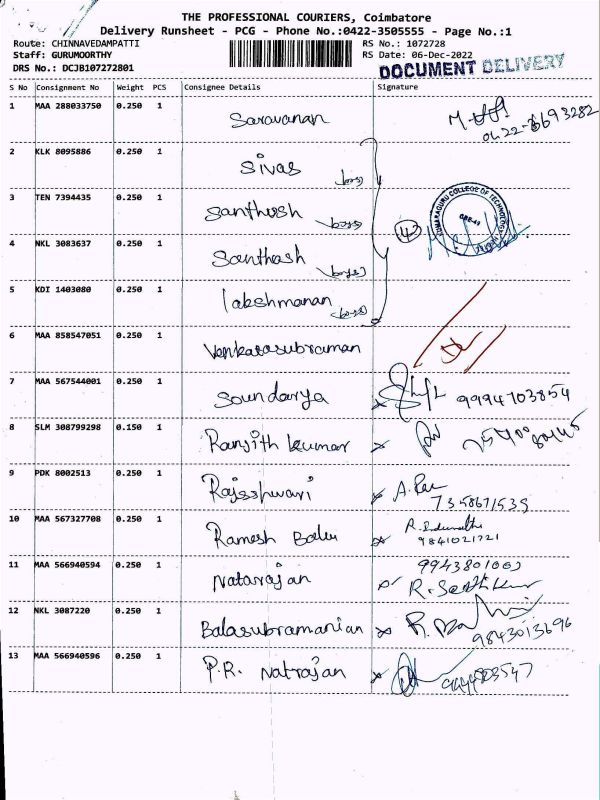 THE PROFESSIONAL COURIERS, Coimbatore
Delivery Runsheet - PCG - Phone No.:0422-3505555 - Page No.:1
Route: CHINNAVEDAMPATTI RS No.: 1072728
Staff: GURUMOORTHY RS Date: 06-Dec-2022
DRS No.: DCJB107272801 DOCUMENT DELIVERY
S No Consignment No Weight PCS Consignee Details Signature
1 MAA 288033750 0.250 1 Saravanan
0422-6693282
2 KLK 8095886 0.250 1 Sivas
3 TEN 7394435 0.250 1 Santhosh
KUMARAGURU COLLEGE OF TECHNOLOGY
4 NKL 3083637 0.250 1 Santhosh
5 KDI 1403080 0.250 1 lakshmanan
6 MAA 858547051 0.250 1 Venkatasubraman
7 MAA 567544001 0.250 1 Soundarya 9994703854
8 SLM 308799298 0.150 1 Ranjith kumar
9 PDK 8002513 0.250 1 Rajeshwari
7358671535
10 MAA 567327708 0.250 1 Ramesh Babu
9841021721
11 MAA 566940594 0.250 1 Natarajan
12 NKL 3087220 0.250 1 Balasubramanian
9843013696
13 MAA 566940596 0.250 1 P.R. Natrajan